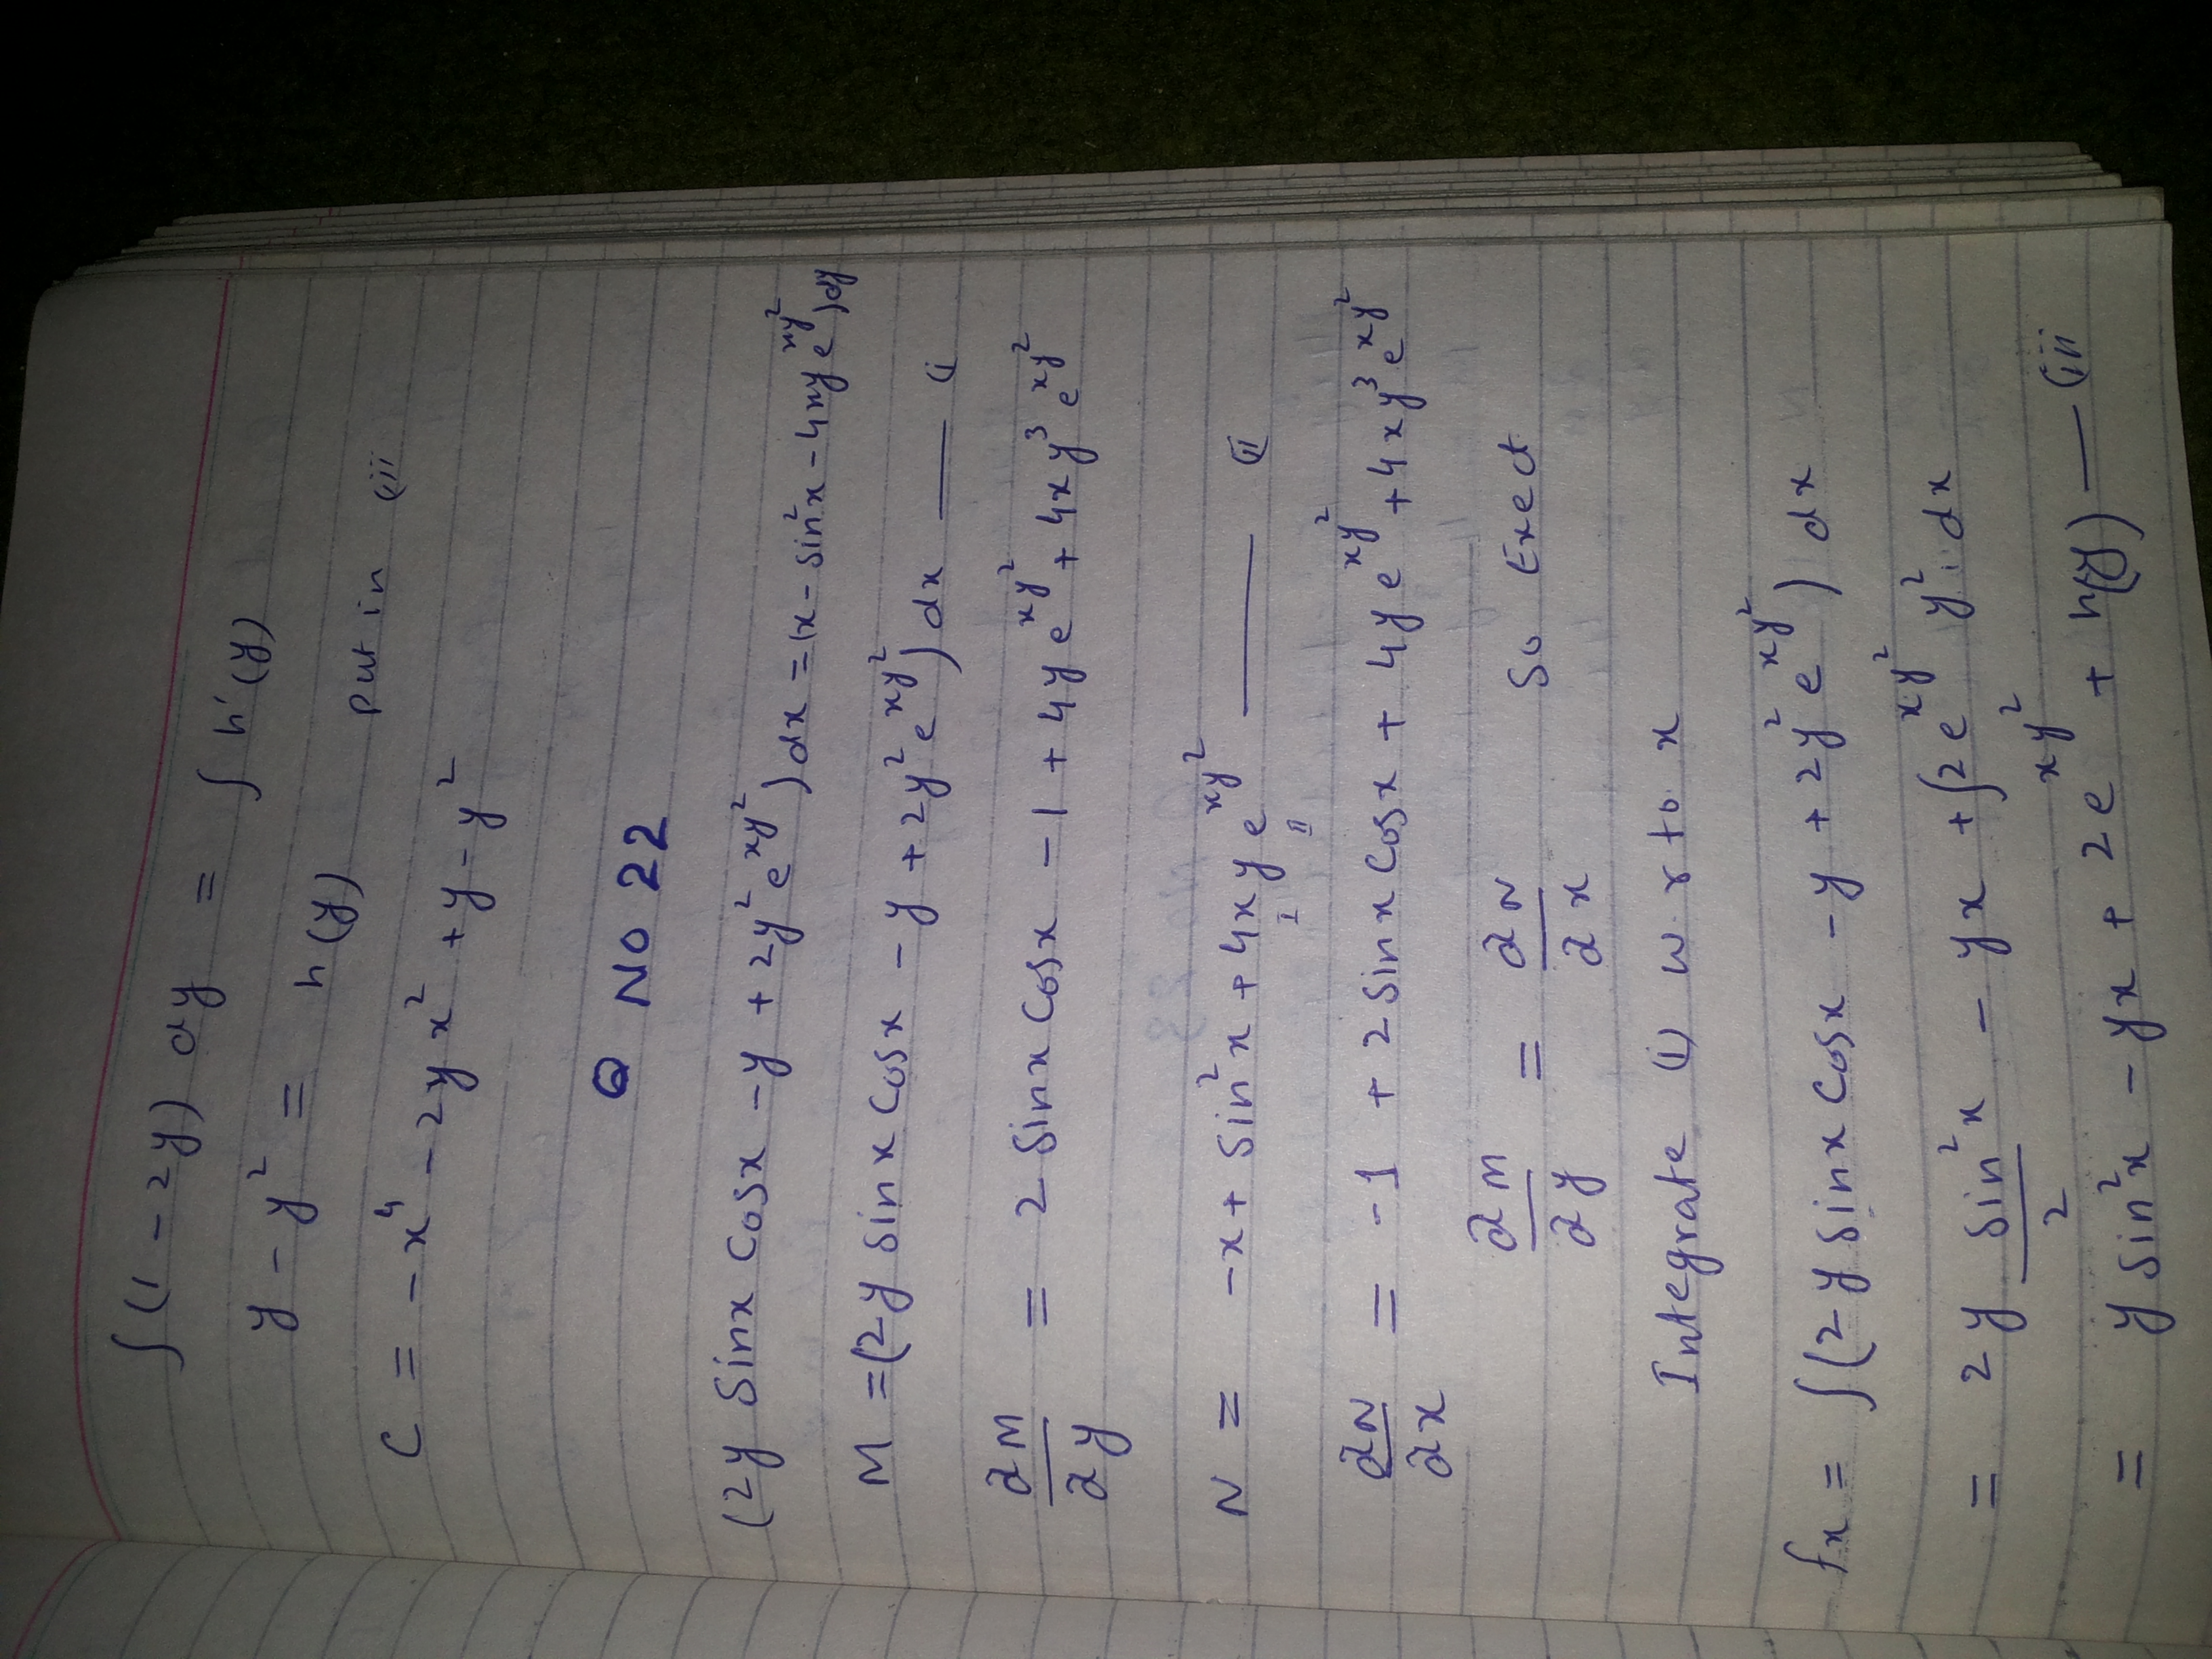 ∫(1 - 2y) dy = ∫ h'(y)
y - y² = h(y) put in (iii
C = -x⁴ - 2yx² + y - y²
Q No 22
(2y Sinx Cosx - y + 2y²e^{xy²})dx = (x - sin²x - 4xye^{xy²})dy
M = (2y sinx Cosx - y + 2y²e^{xy²})dx —— (i
∂M/∂y = 2 Sinx Cosx - 1 + 4ye^{xy²} + 4xy³e^{xy²}
N = -x + sin²x + 4xye^{xy²} —— (ii
I II
∂N/∂x = -1 + 2sinx Cosx + 4ye^{xy²} + 4xy³e^{xy²}
∂M/∂y = ∂N/∂x So Exect
Integrate (i) w.r to. x
fx = ∫(2y sinx Cosx - y + 2y²e^{xy²}) dx
= 2y sin²x/2 - yx + ∫2e^{xy²} y². dx
= y sin²x - yx + 2e^{xy²} + h(y) — (iii